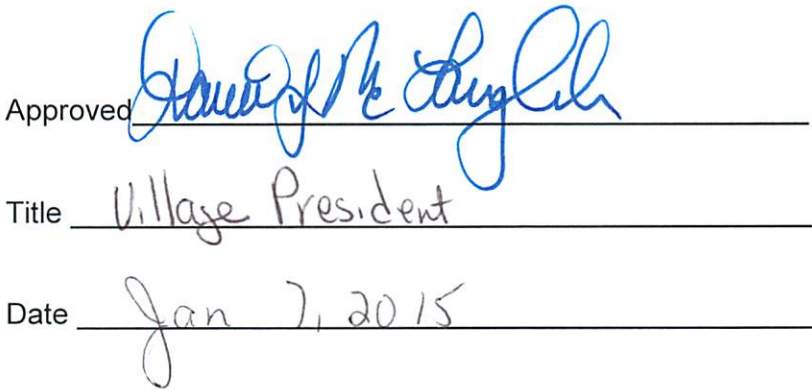 Approved Daniel J. McLaughlin
Title Village President
Date Jan 7, 2015